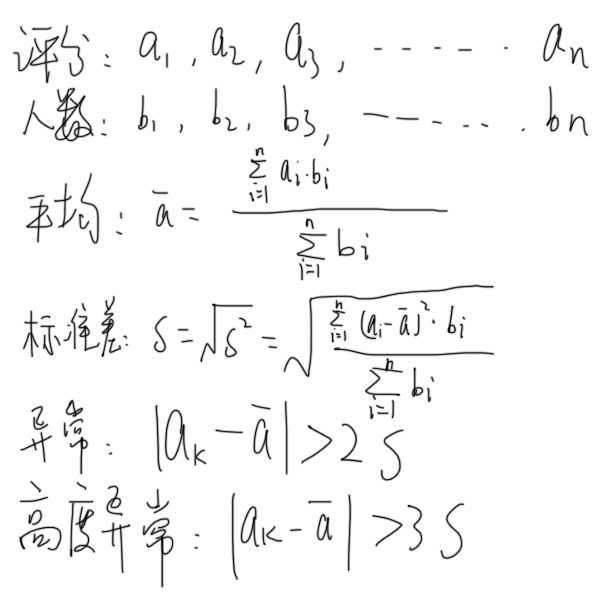 评分: a₁, a₂, a₃, ------· aₙ
人数: b₁, b₂, b₃, ------· bₙ
平均: ā = \frac{\sum_{i=1}^{n} a_i·b_i}{\sum_{i=1}^{n} b_i}
标准差: S = \sqrt{S^2} = \sqrt{\frac{\sum_{i=1}^{n} (a_i-ā)^2·b_i}{\sum_{i=1}^{n} b_i}}
异常: |a_K - ā| > 2S
高度异常: |a_K - ā| > 3S